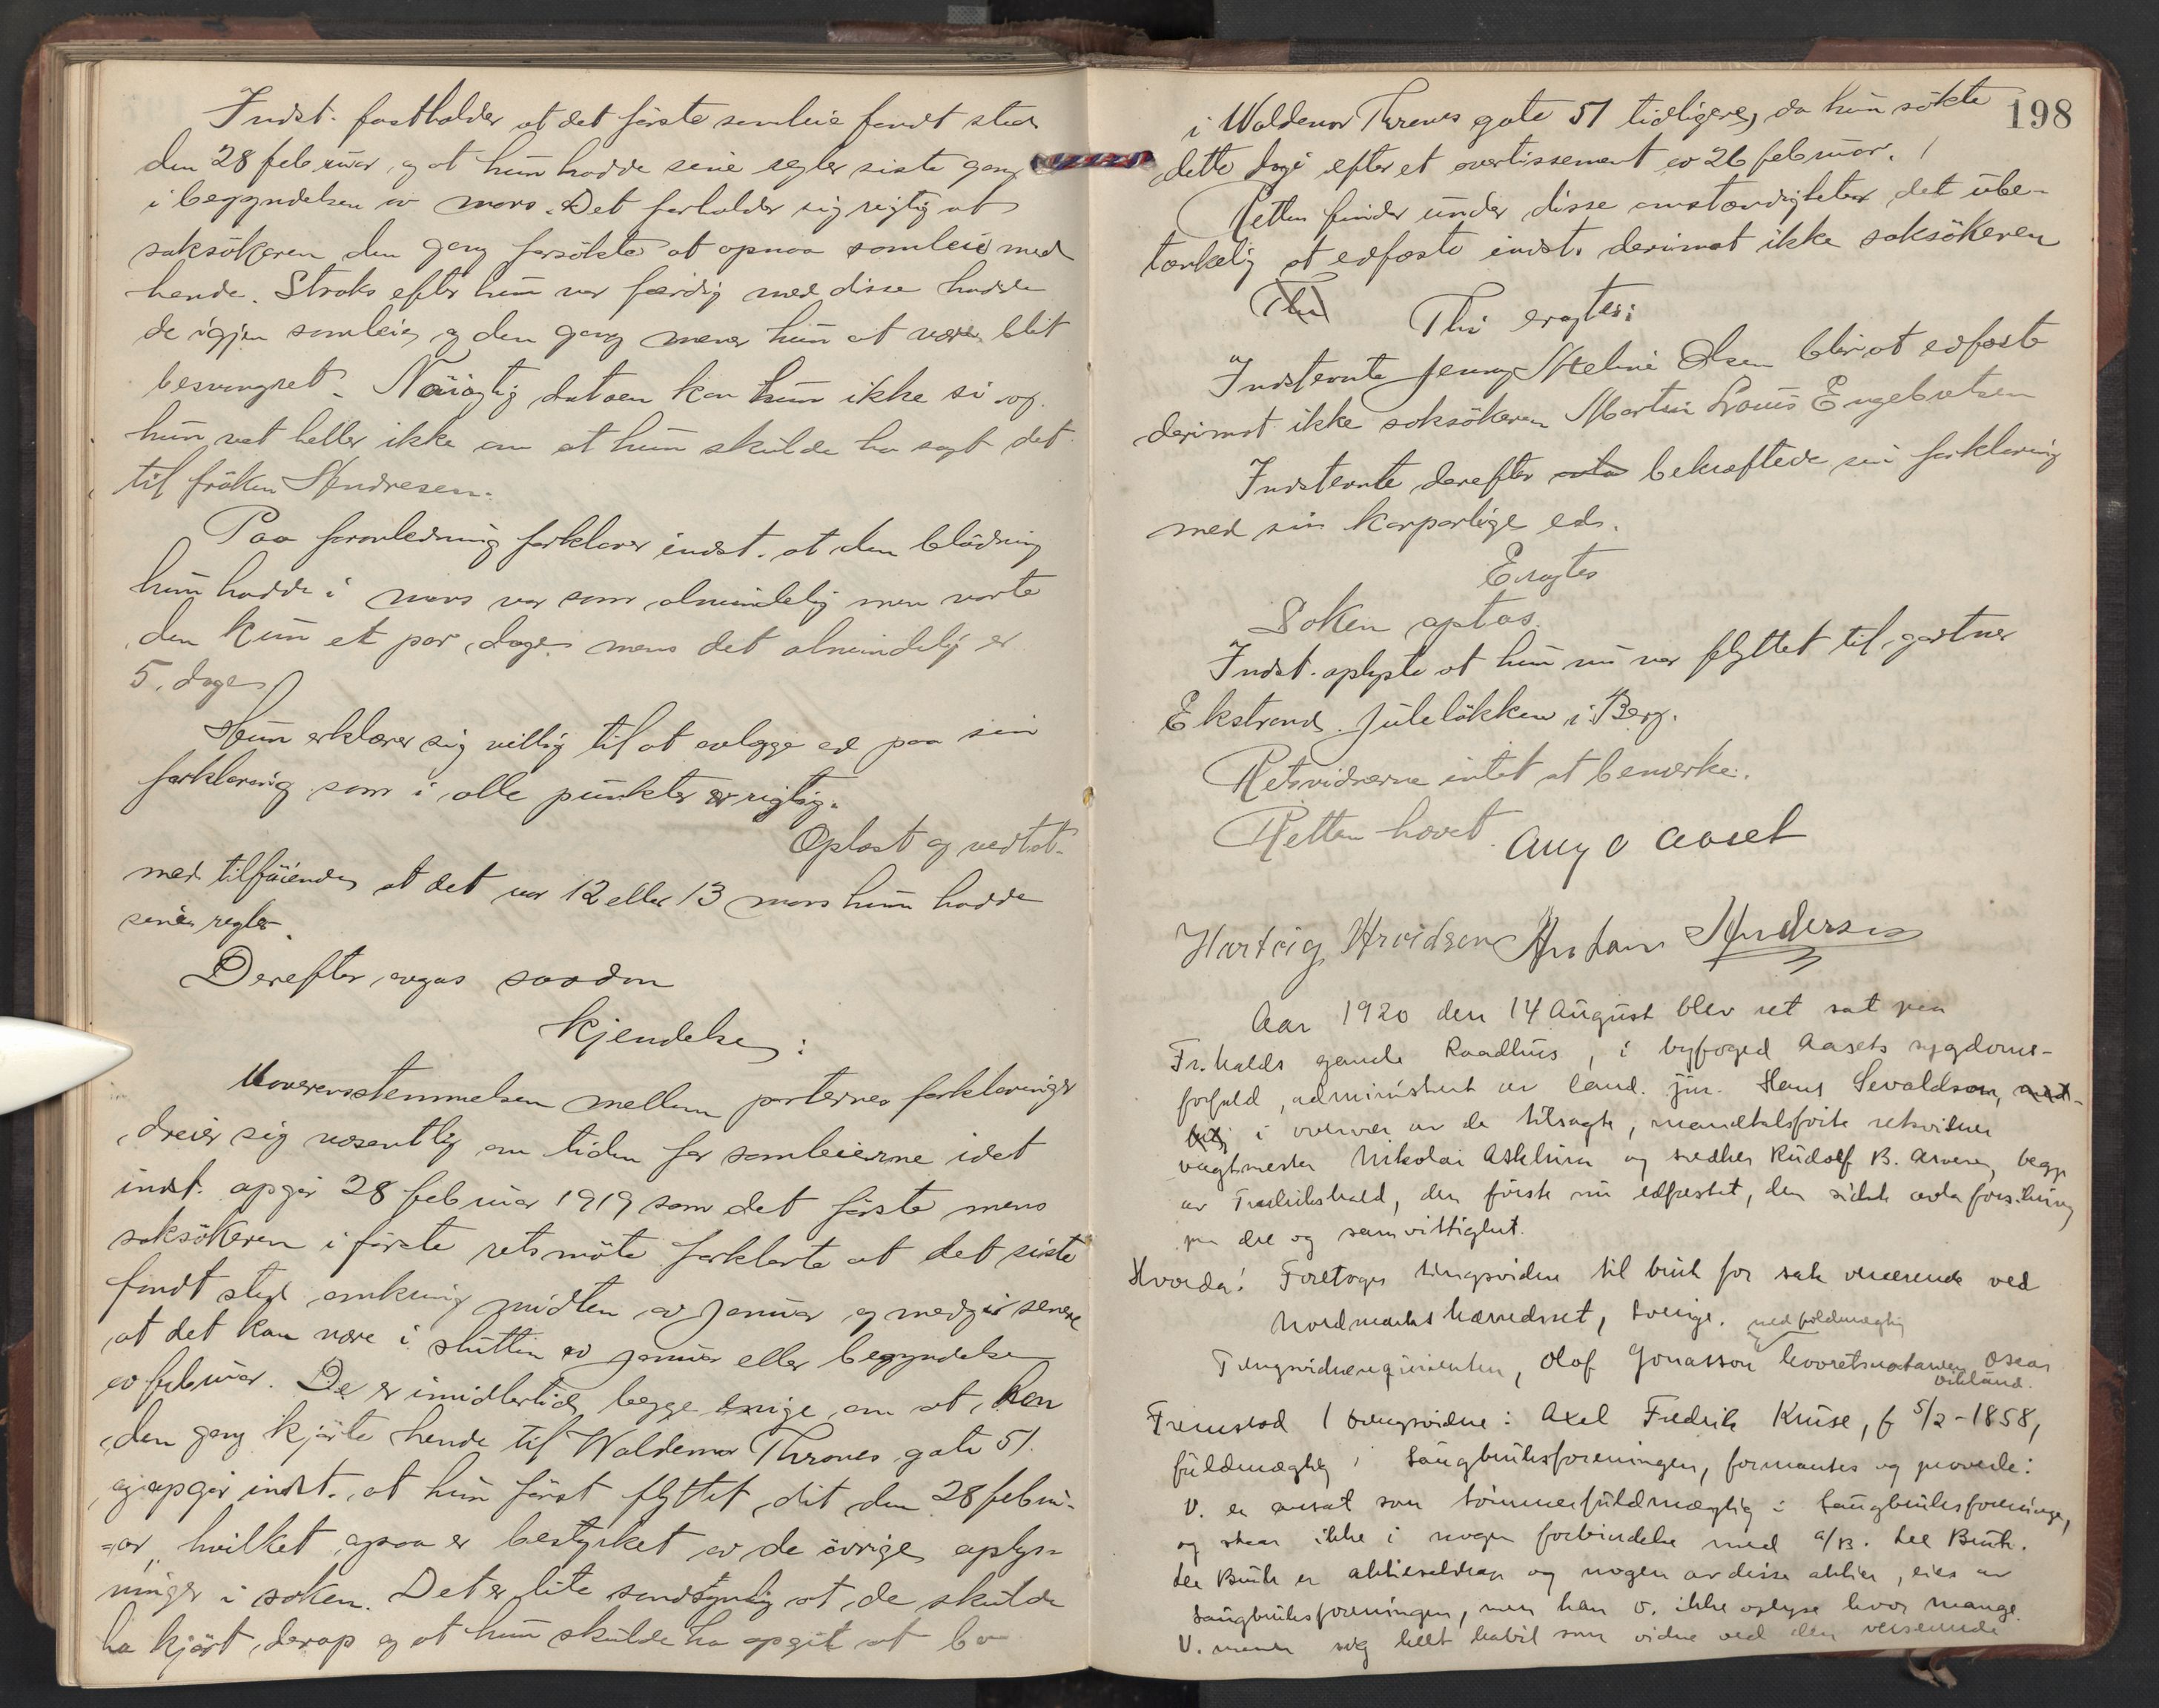 Indst. fastholder at det første samleie fandt sted
den 28 februar, og at hun hadde sine regler siste gang
i begyndelsen av mars. Det forholder sig rigtig at
saksøkeren den gang forsøkte at opnaa samleie med
hende. Straks efter hun var færdig med disse hadde
de igjen samleie, og den gang mener hun at være blit
besvangret. Nøiagtig datoen kan hun ikke si og
hun vet heller ikke om at hun skulde ha sagt det
til frøken Andresen.
Paa foranledning forklarer indst. at den blødning
hun hadde i mars var som almindelig men varte
den kun et par dage, mens det almindelig er
5 dage.
Hun erklærer sig villig til at avlægge ed paa sin
forklaring som i alle punkter er rigtig.
Oplæst og vedtat.
med tilføiende at det var 12 eller 13 mars hun hadde
sine regler.
Derefter avgas saadan
Kjendelse:
Uoverensstemmelsen mellem parternes forklaringer
dreier sig væsentlig om tiden for samleierne idet
indst. opgir 28 februar 1919 som det første mens
saksøkeren i første retsmøte forklarte at det siste
fandt sted omkring midten av januar og medgir senere
at det kan være i slutten av januar eller begyndelsen
av februar. De er imidlertid begge enige om at han
den gang kjørte hende til Waldemar Thranes gate 51.
og opgir indst. at hun først flyttet dit den 28 febru-
ar, hvilket ogsaa er bestyrket av de øvrige oplys-
ninger i saken. Det er lite sandsynlig at de skulde
ha kjørt derop og at hun skulde ha opgit at bo
198
i Waldemar Thranes gate 51 tidligere, da hun søkte
dette logi efter et avertissement av 26 februar.
Retten finder under disse omstændigheter det ube-
tænkelig at edfæste indst. derimot ikke saksøkeren
Thi
Thi eragtes:
Indstevnte Jenny Meline Olsen blir at edfæste
derimot ikke saksøkeren Martin Louis Engebretsen
Indstevnte derefter bekræftede sin forklaring
med sin korporlige ed.
Eragtes
Saken optas.
Indst. oplyste at hun nu var flyttet til gartner
Ekstrand Juleløkken i Berg.
Retsvidnerne intet at bemerke.
Retten hævet. Aug O Aaset
Hartvig Arvidsen Anton Andersen
Aar 1920 den 14 August blev ret sat paa
Fr.halds gamle Raadhus, i byfoged Aasets sygdoms-
forfald, administrert av cand. jur. Hans Sevaldson,
i overvær av de tilsagte, mandtalsførte retsvidner
vagtmester Nikolai Askheim og snedker Rudolf B. begge
av Fredrikshald, den første nu edfæstet, den sidste avla forsikring
paa ære og samvittighet.
Hvorda: Foretoges tingsvidne til bruk for sak verserende ved
Nordmarks häradsret, Sverige. ved fuldmægtig
Tingsvidnerequirenten, Olof Jonasson hovretsnotarien Oscar
Viklund.
Fremstod 1 tingsvidne: Axel Fredrik Kruse, f 5/2-1858,
fuldmægtig i Saugbruksforeningen, formantes og provede:
V. er ansat som tømmerfuldmægtig i Saugbruksforeningen,
og staar ikke i nogen forbindelse med A/B. Lee Bruk.
Lee Bruk er aktieselskap og nogen av disse aktier, eies av
Saugbruksforeningen, men kan v. ikke oplyse hvor mange.
V. mener sig helt habil som vidne ved den verserende